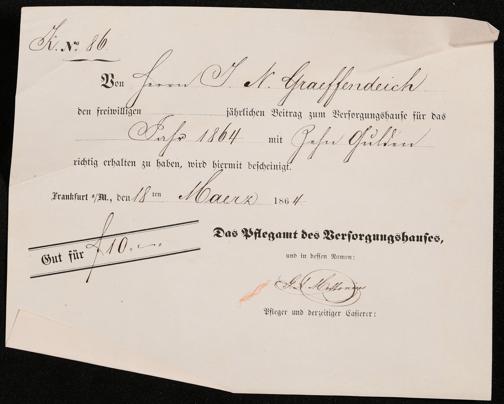 K. No. 86
Von Herrn J. N. Graeffendeich
den freiwilligen jährlichen Beitrag zum Versorgungshause für das
Jahr 1864 mit Zehn Gulden
richtig erhalten zu haben, wird hiermit bescheinigt.
Frankfurt a/M., den 18ten Maerz 1864
Das Pflegamt des Versorgungshauses,
Gut für f 10.—
und in dessen Namen:
Pfleger und derzeitiger Cassierer: